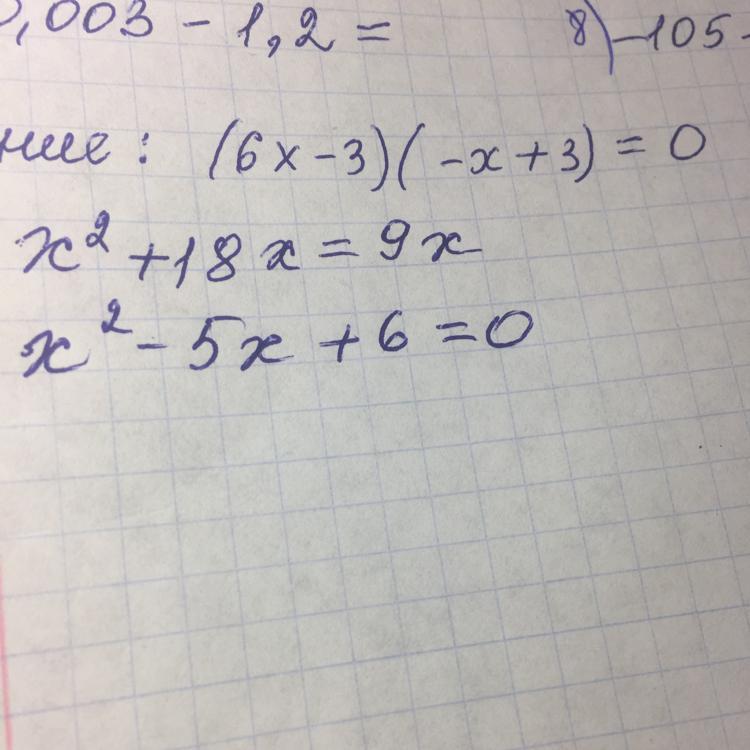 ,003 - 1,2 = 8) -105 -
ние: (6x - 3)(-x + 3) = 0
x² + 18x = 9x
x² - 5x + 6 = 0